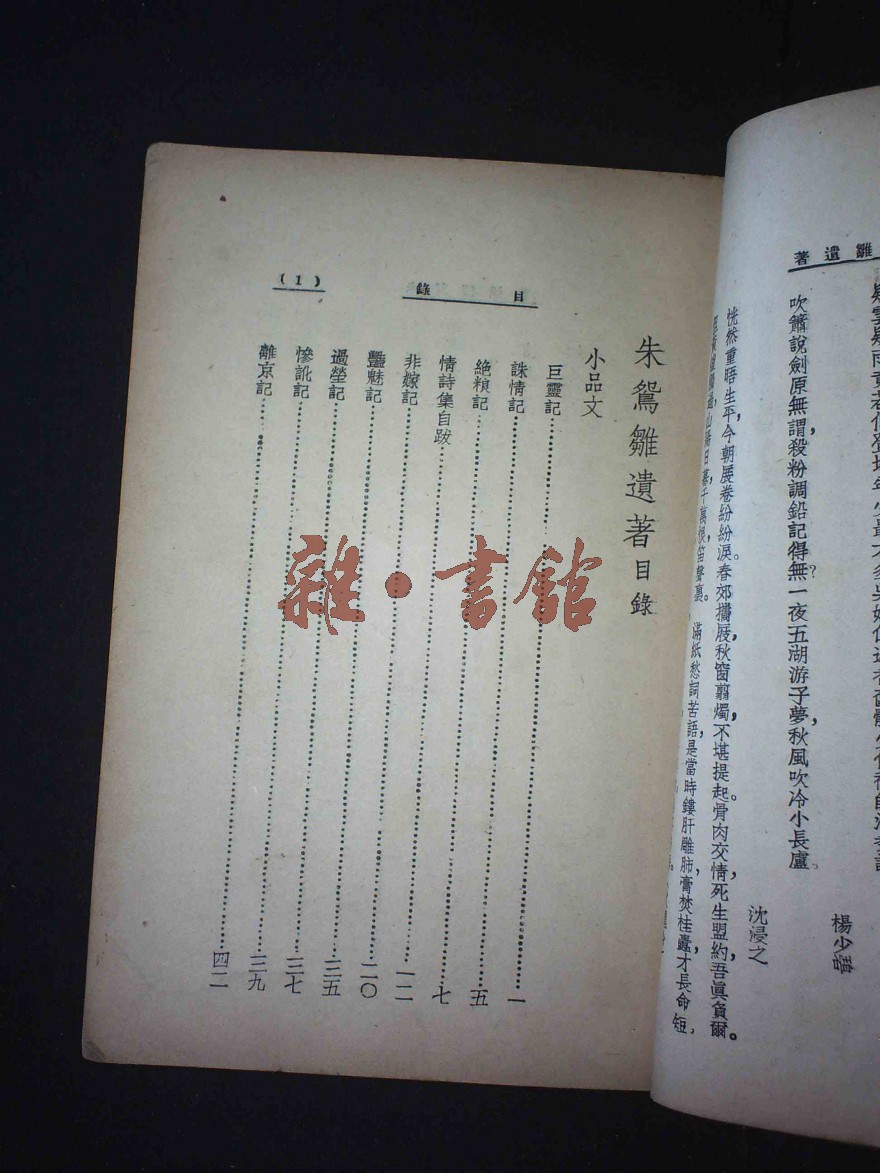 雛遺著
吹簫說劍原無謂,殺粉調鉛記得無?一夜五湖游子夢,秋風吹冷小長盧。
沈浸之
恍然重晤生平,今朝展卷紛紛淚。春郊攜屐,秋窗翦燭,不堪提起。骨肉交情,死生盟約,吾眞負爾。
山陽日暮,千萬恨,笛聲裏。滿紙愁詞苦語,是當時鏤肝雕肺,膏焚桂蠹,才長命短,
目錄
(1)
朱鴛雛遺著目錄
小品文
巨靈記 一
誅情記 五
絕頼記 七
情詩集自跋 一二
非嫁記 二〇
豔魅記 三五
過塋記 三七
慘訛記 三九
離京記 四二
雜·書館